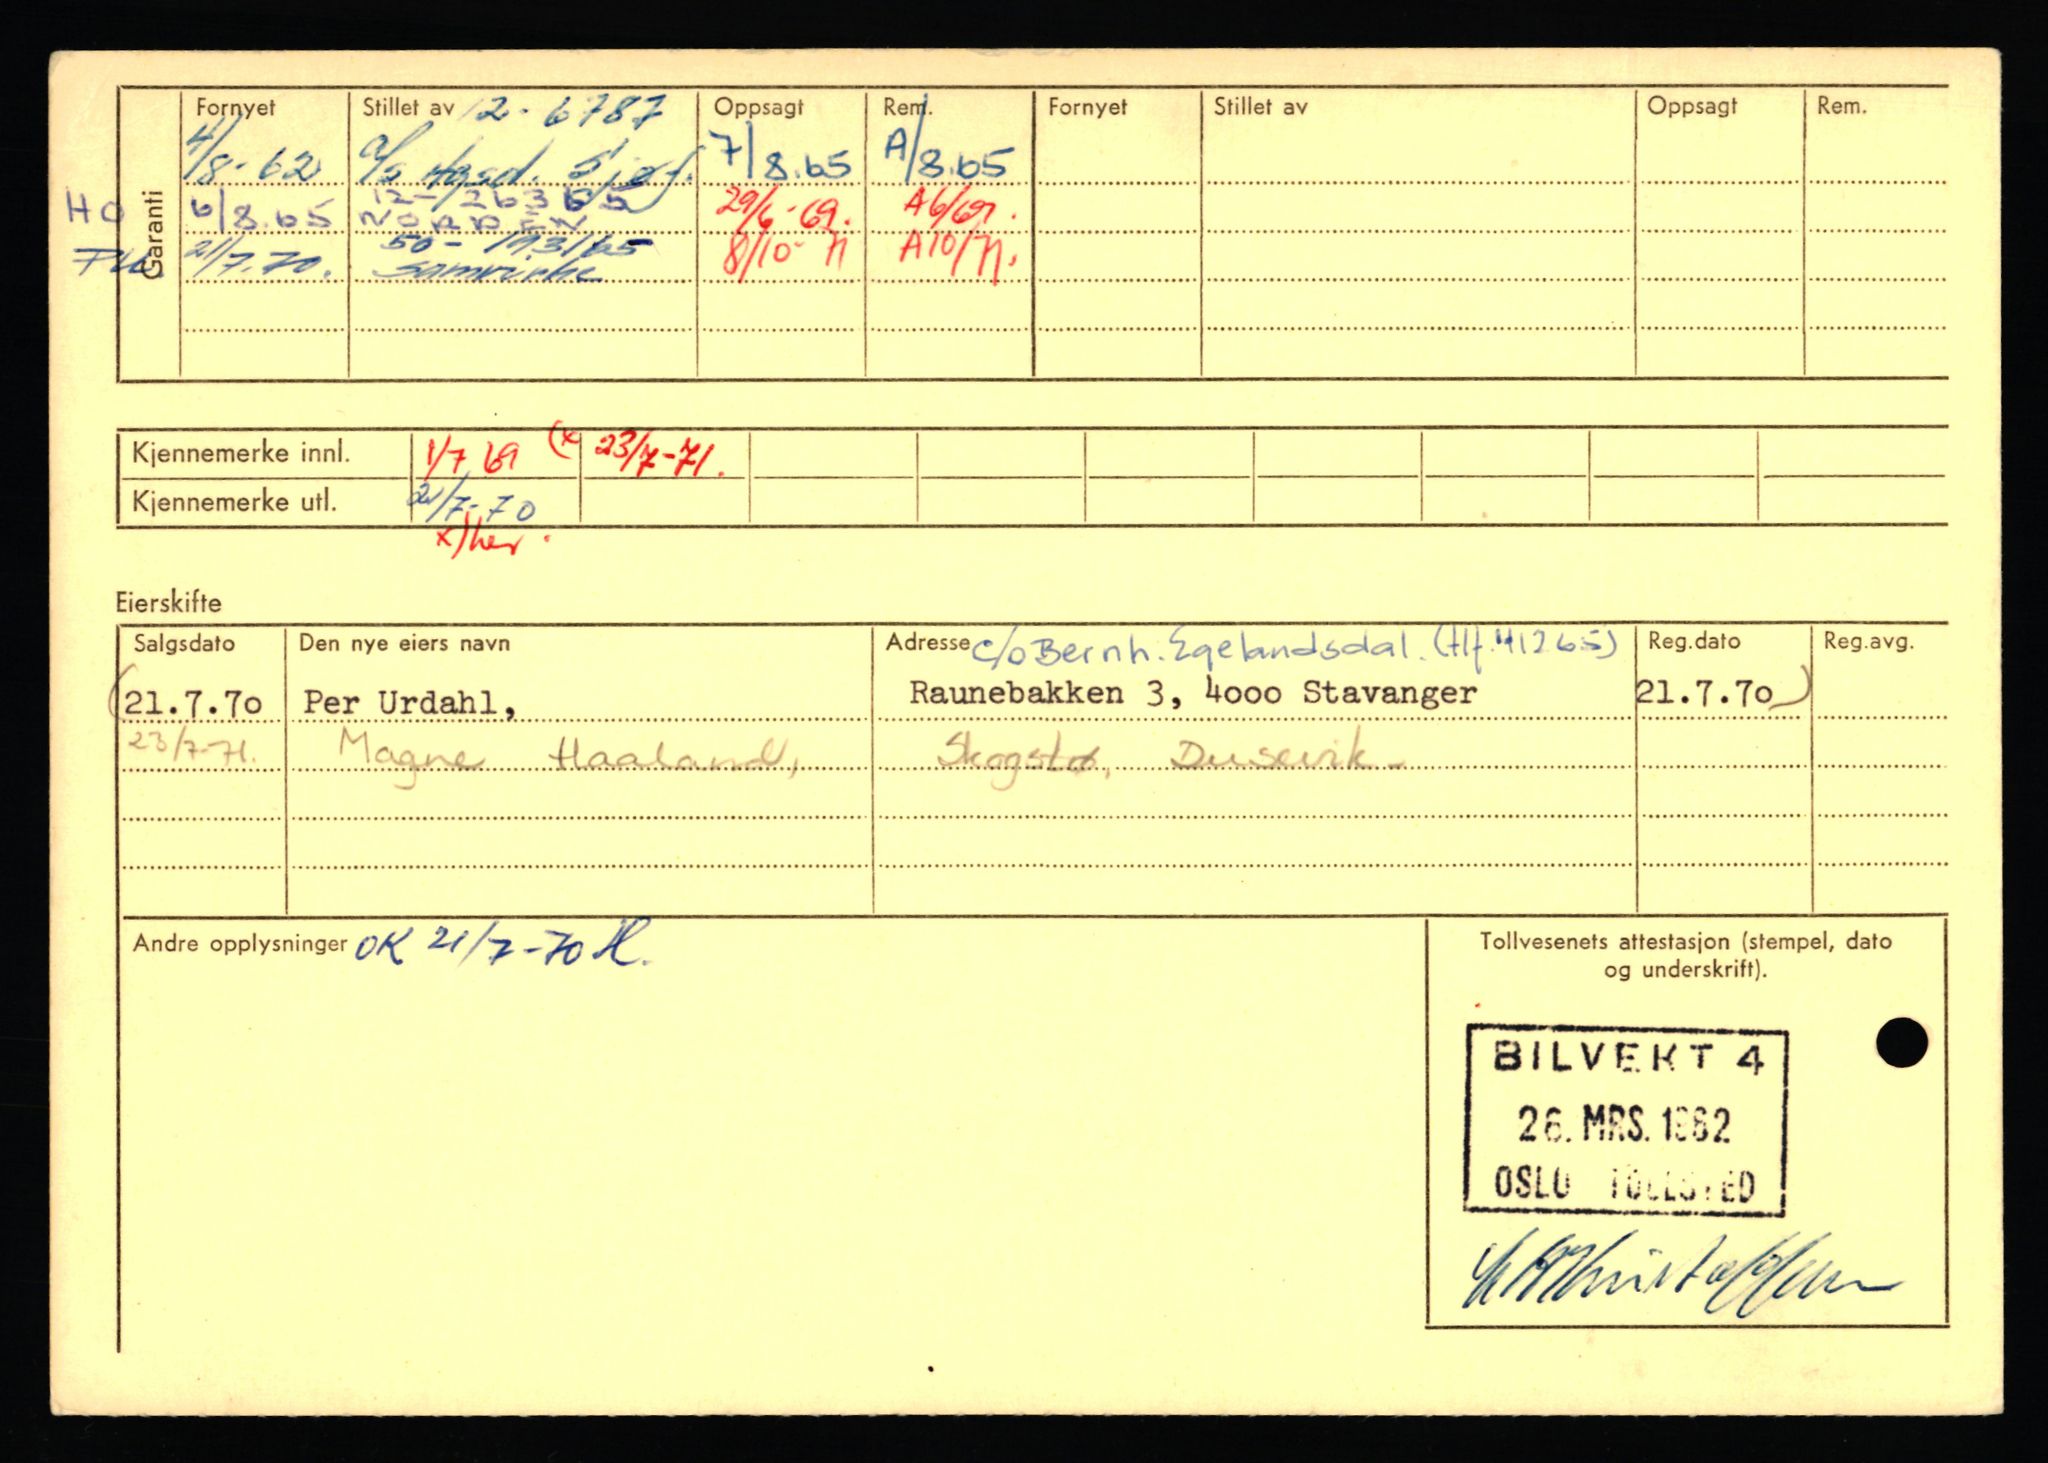 Garanti
Fornyet Stillet av 12-6787 Oppsagt Rem. Fornyet Stillet av Oppsagt Rem.
4/8-62 a/s Hgsd. Sjøf. 7/8.65 A/8.65
HO 6/8.65 12-126365 NORDEN 29/6-69. A6/69.
21/7.70. 50-1931/65 Samvirke 8/10-71 A10/71.
Kjennemerke innl. 1/7 69 (x 23/7-71.
Kjennemerke utl. 21/7-70
x) her.
Eierskifte
Salgsdato Den nye eiers navn Adresse c/o Bernh. Egelandsdal. (tlf. 41265) Reg.dato Reg.avg.
(21.7.70 Per Urdahl, Raunebakken 3, 4000 Stavanger 21.7.70)
23/7-71. Magne Haaland, Dusevik
Andre opplysninger OK 21/7-70
Tollvesenets attestasjon (stempel, dato
og underskrift).
BILVEKT 4
26. MRS. 1962
OSLO TOLLSTED